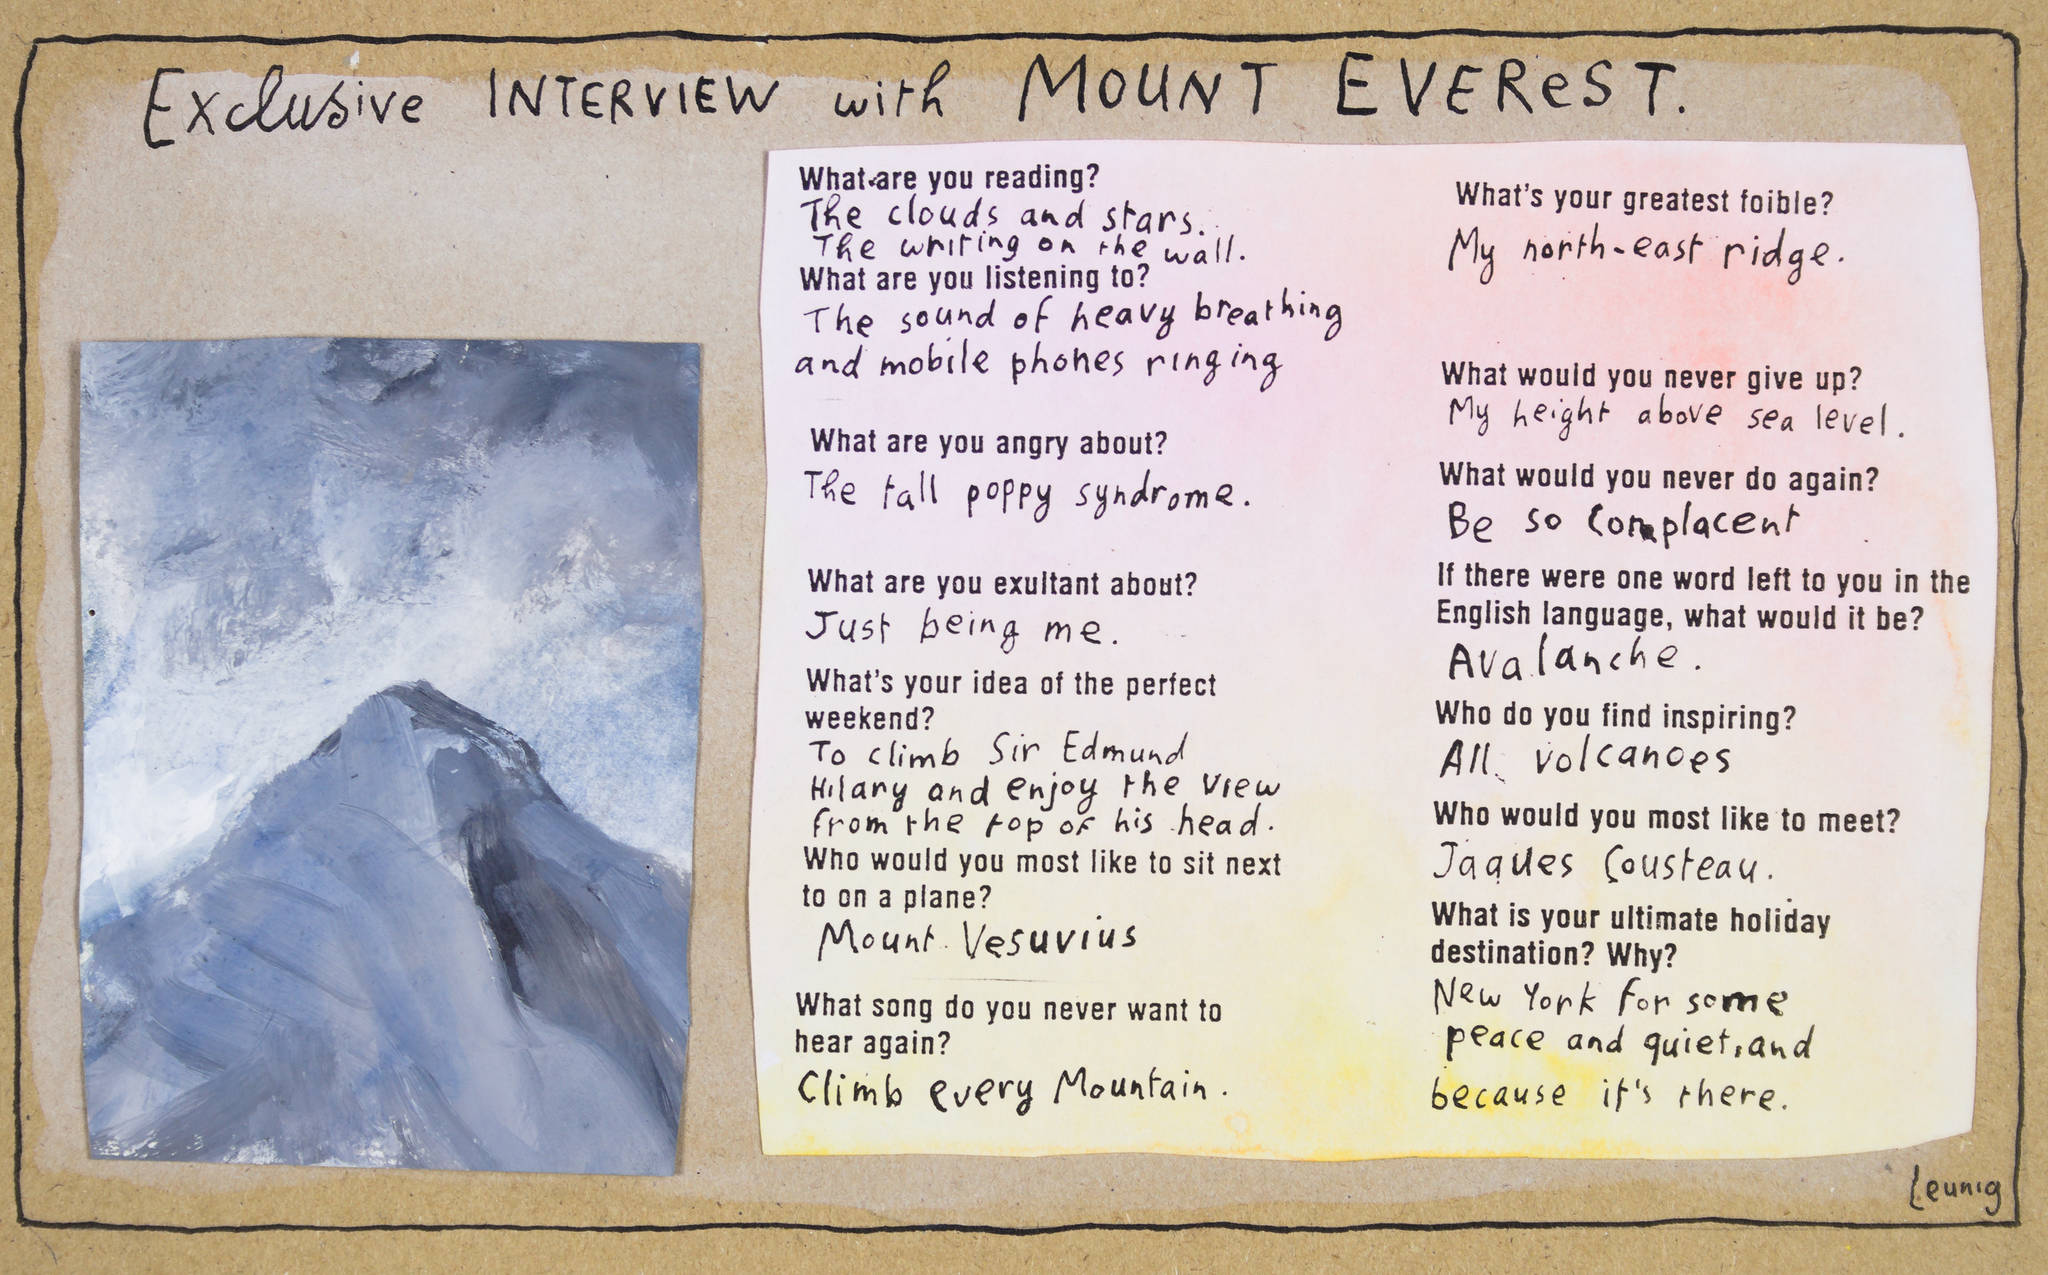 Exclusive INTERVIEW with MOUNT EVEREST.
What are you reading?
The clouds and stars.
The writing on the wall.
What are you listening to?
The sound of heavy breathing
and mobile phones ringing
What are you angry about?
The tall poppy syndrome.
What are you exultant about?
Just being me.
What's your idea of the perfect
weekend?
To climb Sir Edmund
Hilary and enjoy the view
from the top of his head.
Who would you most like to sit next
to on a plane?
Mount Vesuvius
What song do you never want to
hear again?
Climb every Mountain.
What's your greatest foible?
My north-east ridge.
What would you never give up?
My height above sea level.
What would you never do again?
Be so complacent
If there were one word left to you in the
English language, what would it be?
Avalanche.
Who do you find inspiring?
All volcanoes
Who would you most like to meet?
Jaques Cousteau.
What is your ultimate holiday
destination? Why?
New York for some
peace and quiet, and
because it's there.
Leunig